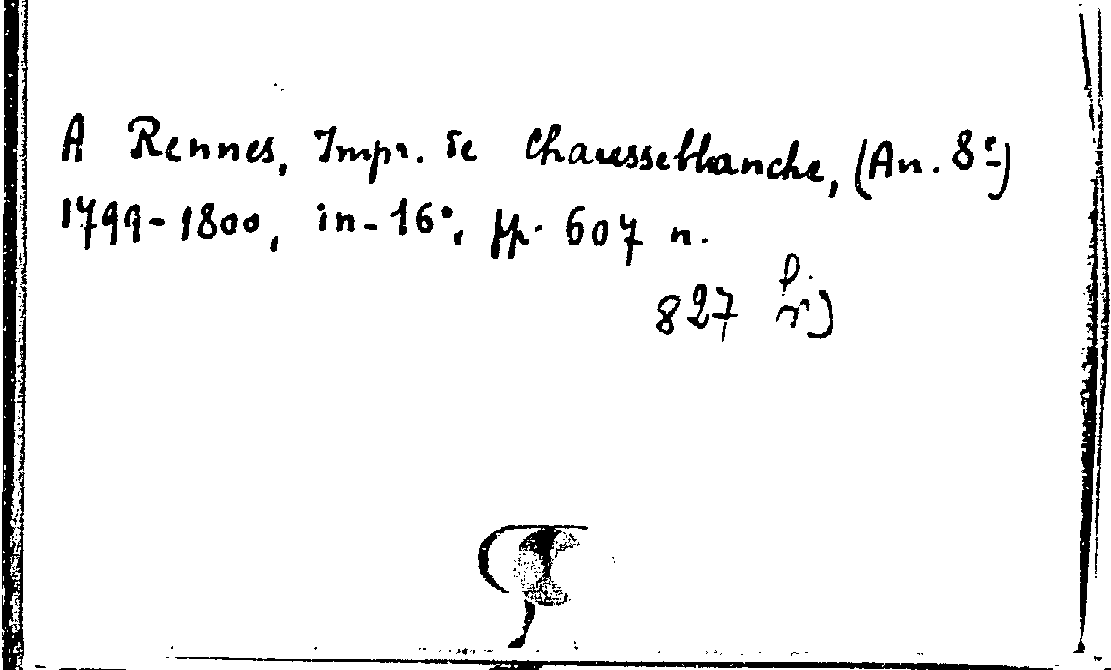 A Rennes, Impr. de Chausseblanche, (An. 8e)
1799-1800, in-16°, pp. 607 n.
827